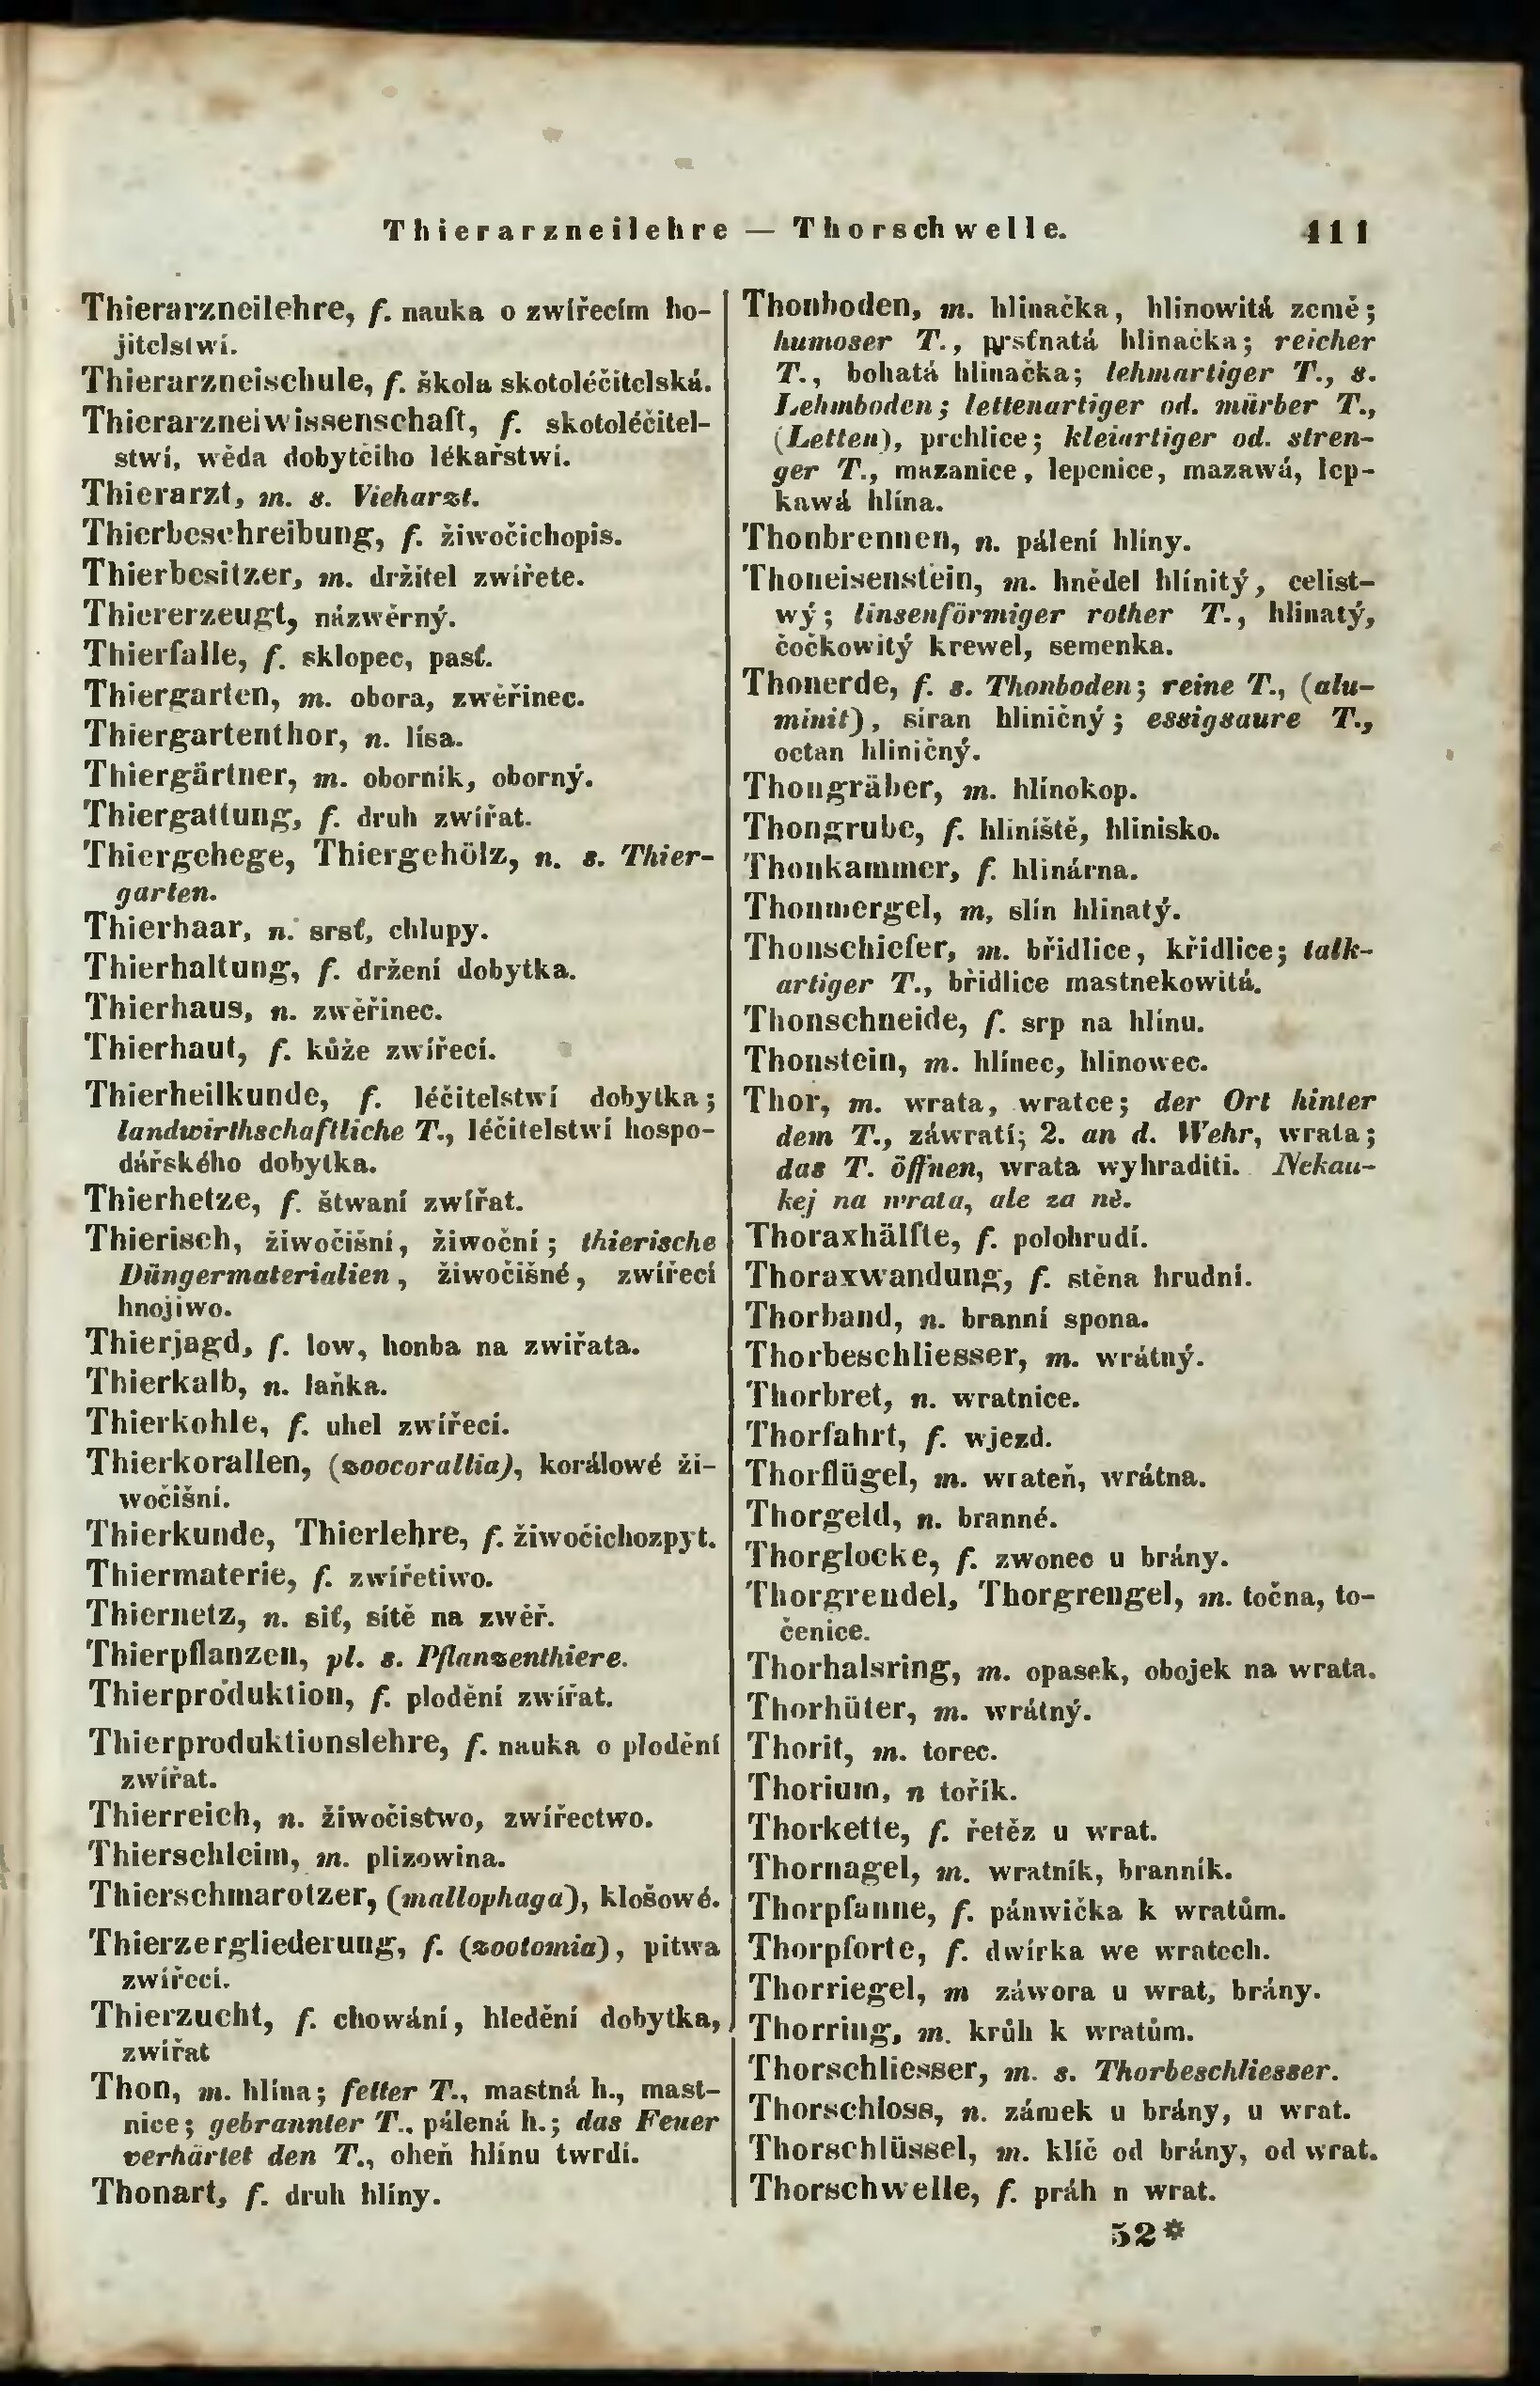 Thierarzneilehre — Thorschwelle. 411
Thierarzneilehre, f. nauka o zwířecím ho-
jitelstwí.
Thierarzneischule, f. škola skotoléčitelská.
Thierarzneiwissenschaft, f. skotoléčitel-
stwí, wěda dobytčího lékařstwí.
Thierarzt, m. s. Vieharzt.
Thierbeschreibung, f. žiwočichopis.
Thierbesitzer, m. držitel zwířete.
Thiererzeugt, názwěrný.
Thierfalle, f. sklopec, pasť.
Thiergarten, m. obora, zwěřinec.
Thiergartenthor, n. lísa.
Thiergärtner, m. oborník, oborný.
Thiergattung, f. druh zwířat.
Thiergehege, Thiergehölz, n. s. Thier-
garten.
Thierhaar, n. srsť, chlupy.
Thierhaltung, f. držení dobytka.
Thierhaus, n. zwěřinec.
Thierhaut, f. kůže zwířecí.
Thierheilkunde, f. léčitelstwí dobytka;
landwirthschaftliche T., léčitelstwí hospo-
dářského dobytka.
Thierhetze, f. štwaní zwířat.
Thierisch, žiwočišní, žiwoční; thierische
Düngermaterialien, žiwočišné, zwířecí
hnojiwo.
Thierjagd, f. low, honba na zwiřata.
Thierkalb, n. laňka.
Thierkohle, f. uhel zwířecí.
Thierkorallen, (zoocorallia), korálowé ži-
wočišní.
Thierkunde, Thierlehre, f. žiwočichozpyt.
Thiermaterie, f. zwířetiwo.
Thiernetz, n. siť, sítě na zwěř.
Thierpflanzen, pl. s. Pflanzenthiere.
Thierproduktion, f. plodění zwířat.
Thierproduktionslehre, f. nauka o plodění
zwířat.
Thierreich, n. žiwočistwo, zwířectwo.
Thierschleim, m. plizowina.
Thierschmarotzer, (mallophaga), klošowé.
Thierzergliederung, f. (zootomia), pitwa
zwířecí.
Thierzucht, f. chowání, hledění dobytka,
zwířat
Thon, m. hlína; fetter T., mastná h., mast-
nice; gebrannter T., pálená h.; das Feuer
verhärtet den T., oheň hlínu twrdí.
Thonart, f. druh hlíny.
Thonboden, m. hlinačka, hlinowitá země;
humoser T., prsťnatá hlinačka; reicher
T., bohatá hlinačka; lehmartiger T., s.
Lehmboden; lettenartiger od. mürber T.,
(Letten), prchlice; kleiartiger od. stren-
ger T., mazanice, lepenice, mazawá, lep-
kawá hlína.
Thonbrennen, n. pálení hlíny.
Thoneisenstein, m. hnědel hlínitý, celist-
wý; linsenförmiger rother T., hlinatý,
čočkowitý krewel, semenka.
Thonerde, f. s. Thonboden; reine T., (alu-
minit), síran hliničný; essigsaure T.,
octan hliničný.
Thongräber, m. hlínokop.
Thongrube, f. hliniště, hlinisko.
Thonkammer, f. hlinárna.
Thonmergel, m, slín hlinatý.
Thonschiefer, m. břidlice, křidlice; talk-
artiger T., břidlice mastnekowitá.
Thonschneide, f. srp na hlínu.
Thonstein, m. hlínec, hlinowec.
Thor, m. wrata, wratce; der Ort hinter
dem T., záwratí; 2. an d. Wehr, wrata;
das T. öffnen, wrata wyhraditi. Nekau-
kej na wrata, ale za ně.
Thoraxhälfte, f. polohrudí.
Thoraxwandung, f. stěna hrudní.
Thorband, n. branní spona.
Thorbeschliesser, m. wrátný.
Thorbret, n. wratnice.
Thorfahrt, f. wjezd.
Thorflügel, m. wrateň, wrátna.
Thorgeld, n. branné.
Thorglocke, f. zwonec u brány.
Thorgrendel, Thorgrengel, m. točna, to-
čenice.
Thorhalsring, m. opasek, obojek na wrata.
Thorhüter, m. wrátný.
Thorit, m. torec.
Thorium, n tořík.
Thorkette, f. řetěz u wrat.
Thornagel, m. wratník, branník.
Thorpfanne, f. pánwička k wratům.
Thorpforte, f. dwírka we wratech.
Thorriegel, m záwora u wrat, brány.
Thorring, m. krůh k wratům.
Thorschliesser, m. s. Thorbeschliesser.
Thorschloss, n. zámek u brány, u wrat.
Thorschlüssel, m. klíč od brány, od wrat.
Thorschwelle, f. práh n wrat.
52*